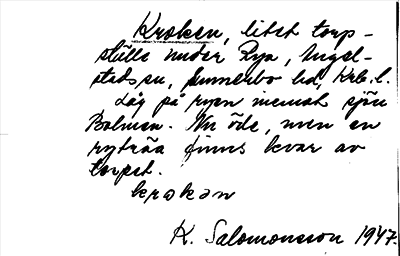 Kroken, litet torp-
ställe under Rya, Angel-
stads sn, Sunnerbo hd, Krb. l.
Låg på ryen inemot sjön
Bolmen. Nu öde, men en
ryträa finns kvar av
torpet.
krokan
K. Salomonsson 1947.